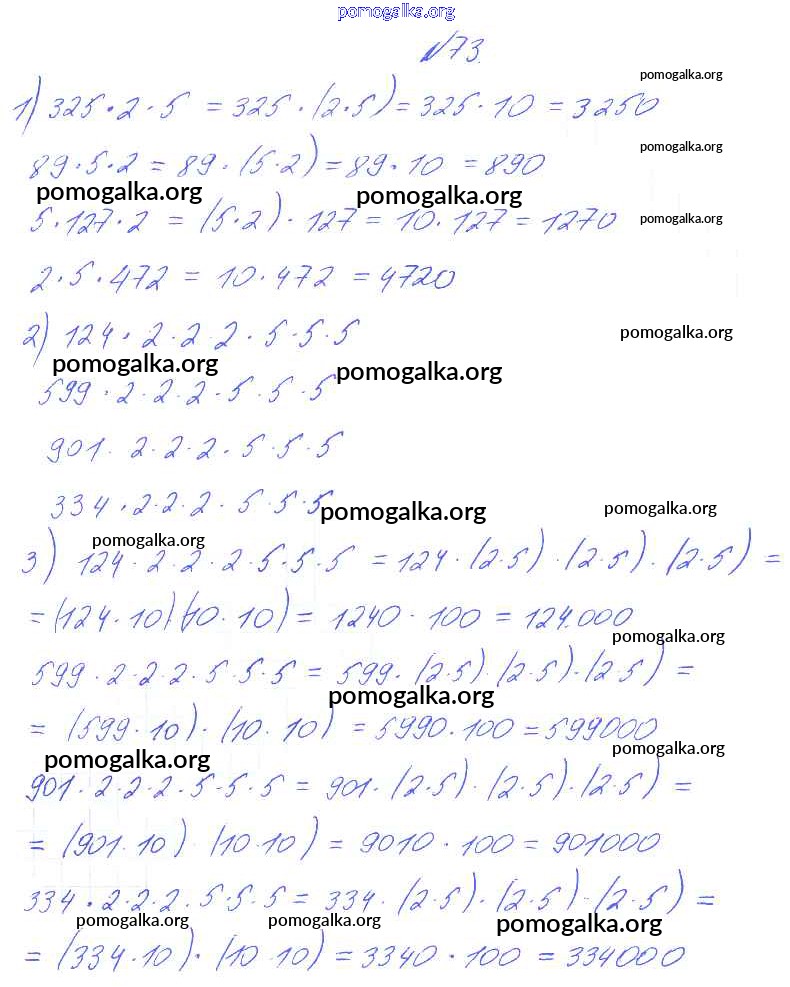 pomogalka.org
№73.
pomogalka.org
1) 325 · 2 · 5 = 325 · (2·5) = 325 · 10 = 3250
pomogalka.org
89 · 5 · 2 = 89 · (5·2) = 89 · 10 = 890
pomogalka.org pomogalka.org
5 · 127 · 2 = (5·2) · 127 = 10 · 127 = 1270 pomogalka.org
2 · 5 · 472 = 10 · 472 = 4720
2) 124 · 2 · 2 2 · 5 · 5 · 5 pomogalka.org
pomogalka.org pomogalka.org
599 · 2 · 2 · 2 · 5 · 5 · 5
901 · 2 · 2 · 2 · 5 · 5 · 5
334 · 2 · 2 · 2 · 5 · 5 · 5 pomogalka.org pomogalka.org
pomogalka.org
3) 124 · 2 · 2 · 2 · 5 · 5 · 5 = 124 · (2·5) · (2·5) · (2·5) =
= (124 · 10)(10 · 10) = 1240 · 100 = 124.000
pomogalka.org
599 · 2 · 2 · 2 · 5 · 5 · 5 = 599 · (2·5) (2·5) · (2·5) =
pomogalka.org
= (599 · 10) · (10 · 10) = 5990 · 100 = 599000
pomogalka.org pomogalka.org
901 · 2 · 2 · 2 · 5 · 5 · 5 = 901 · (2·5) · (2·5) · (2·5) =
= (901 · 10) (10 · 10) = 9010 · 100 = 901000
334 · 2 · 2 · 2 · 5 · 5 · 5 = 334 · (2·5) · (2·5) · (2·5) =
pomogalka.org pomogalka.org pomogalka.org
= (334 · 10) · (10 10) = 3340 · 100 = 334000